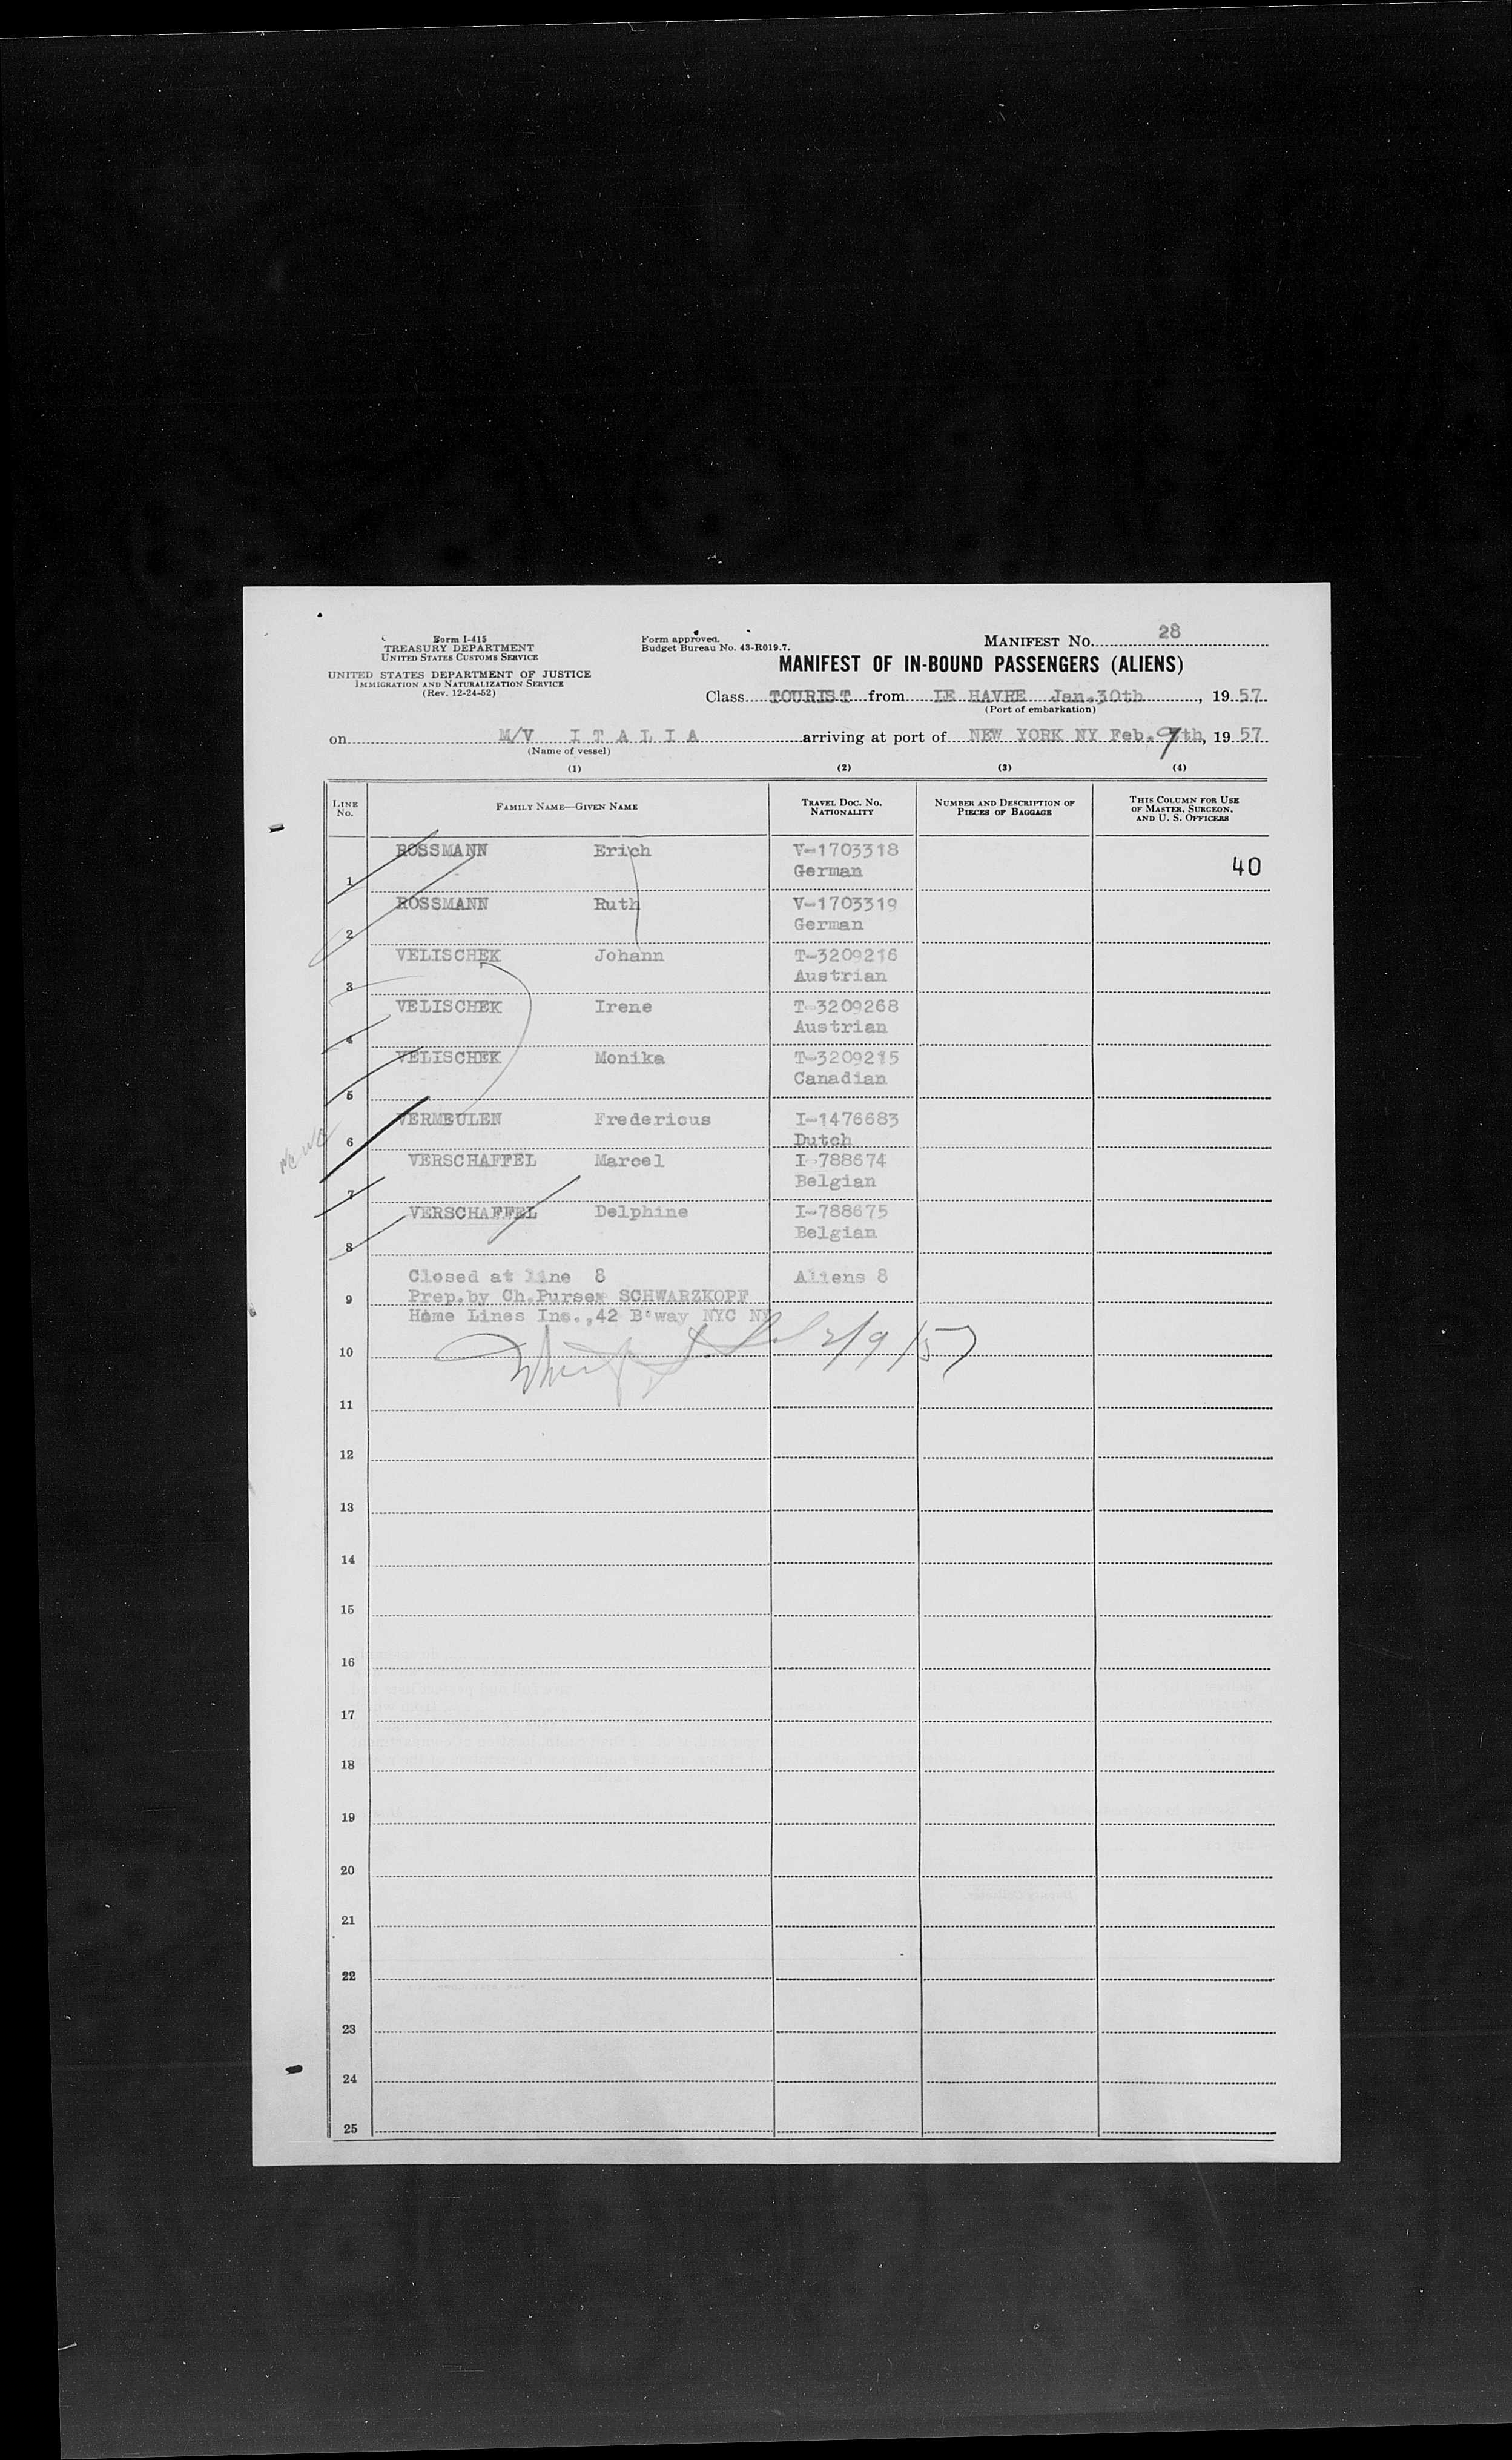 Form I-415
TREASURY DEPARTMENT
UNITED STATES CUSTOMS SERVICE
UNITED STATES DEPARTMENT OF JUSTICE
IMMIGRATION AND NATURALIZATION SERVICE
(Rev. 12-24-52)
Form approved.
Budget Bureau No. 43-R019.7.
MANIFEST NO. 28
MANIFEST OF IN-BOUND PASSENGERS (ALIENS)
Class TOURIST from LE HAVRE Jan.30th, 19 57
(Port of embarkation)
on M/V I T A L I A arriving at port of NEW YORK NY Feb. 9th, 19 57
(Name of vessel)
(1) (2) (3) (4)
LINE NO. FAMILY NAME—GIVEN NAME TRAVEL DOC. NO. NATIONALITY NUMBER AND DESCRIPTION OF PIECES OF BAGGAGE THIS COLUMN FOR USE OF MASTER, SURGEON, AND U. S. OFFICERS
1 ROSSMANN Erich V-1703318 German 40
2 ROSSMANN Ruth V-1703319 German
3 VELISCHEK Johann T-3209216 Austrian
4 VELISCHEK Irene T-3209268 Austrian
5 VELISCHEK Monika T-3209215 Canadian
6 VERMEULEN Fredericus I-1476683 Dutch
7 VERSCHAFFEL Marcel I-788674 Belgian
8 VERSCHAFFEL Delphine I-788675 Belgian
Closed at line 8 Aliens 8
9 Prep.by Ch.Purser SCHWARZKOPF
Home Lines Inc.,42 B'way NYC NY
10 2/9/57
11
12
13
14
15
16
17
18
19
20
21
22
23
24
25